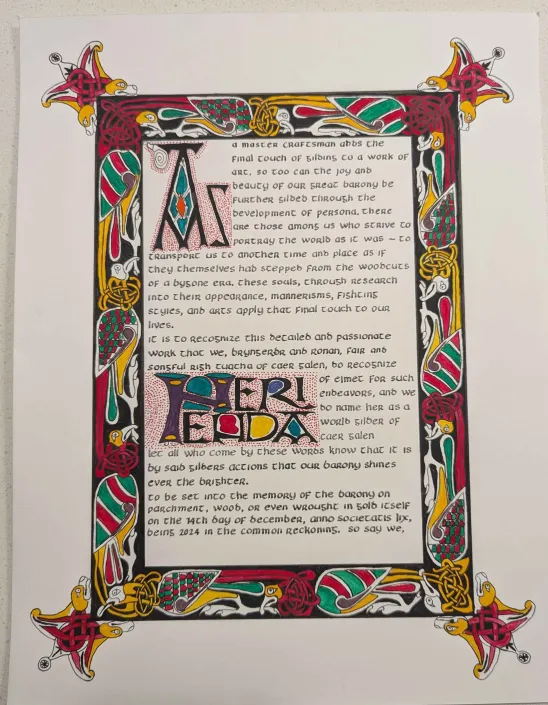 As a master craftsman adds the
final touch of gilding to a work of
art, so too can the joy and
beauty of our great barony be
further gilded through the
development of persona. there
are those among us who strive to
portray the world as it was – to
transport us to another time and place as if
they themselves had stepped from the woodcuts
of a bygone era. these souls, through research
into their appearance, mannerisms, fighting
styles, and arts apply that final touch to our
lives.
it is to recognize this detailed and passionate
work that we, brynserdr and ronan, fair and
songful righ tuatha of caer galen, do recognize
HERI
ENDA
of elmet for such
endeavors, and we
do name her as a
world gilder of
caer galen
let all who come by these words know that it is
by said gilders actions that our barony shines
ever the brighter.
to be set into the memory of the barony on
parchment, wood, or even wrought in gold itself
on the 14th day of december, anno societatis lix,
being 2024 in the common reckoning. so say we,